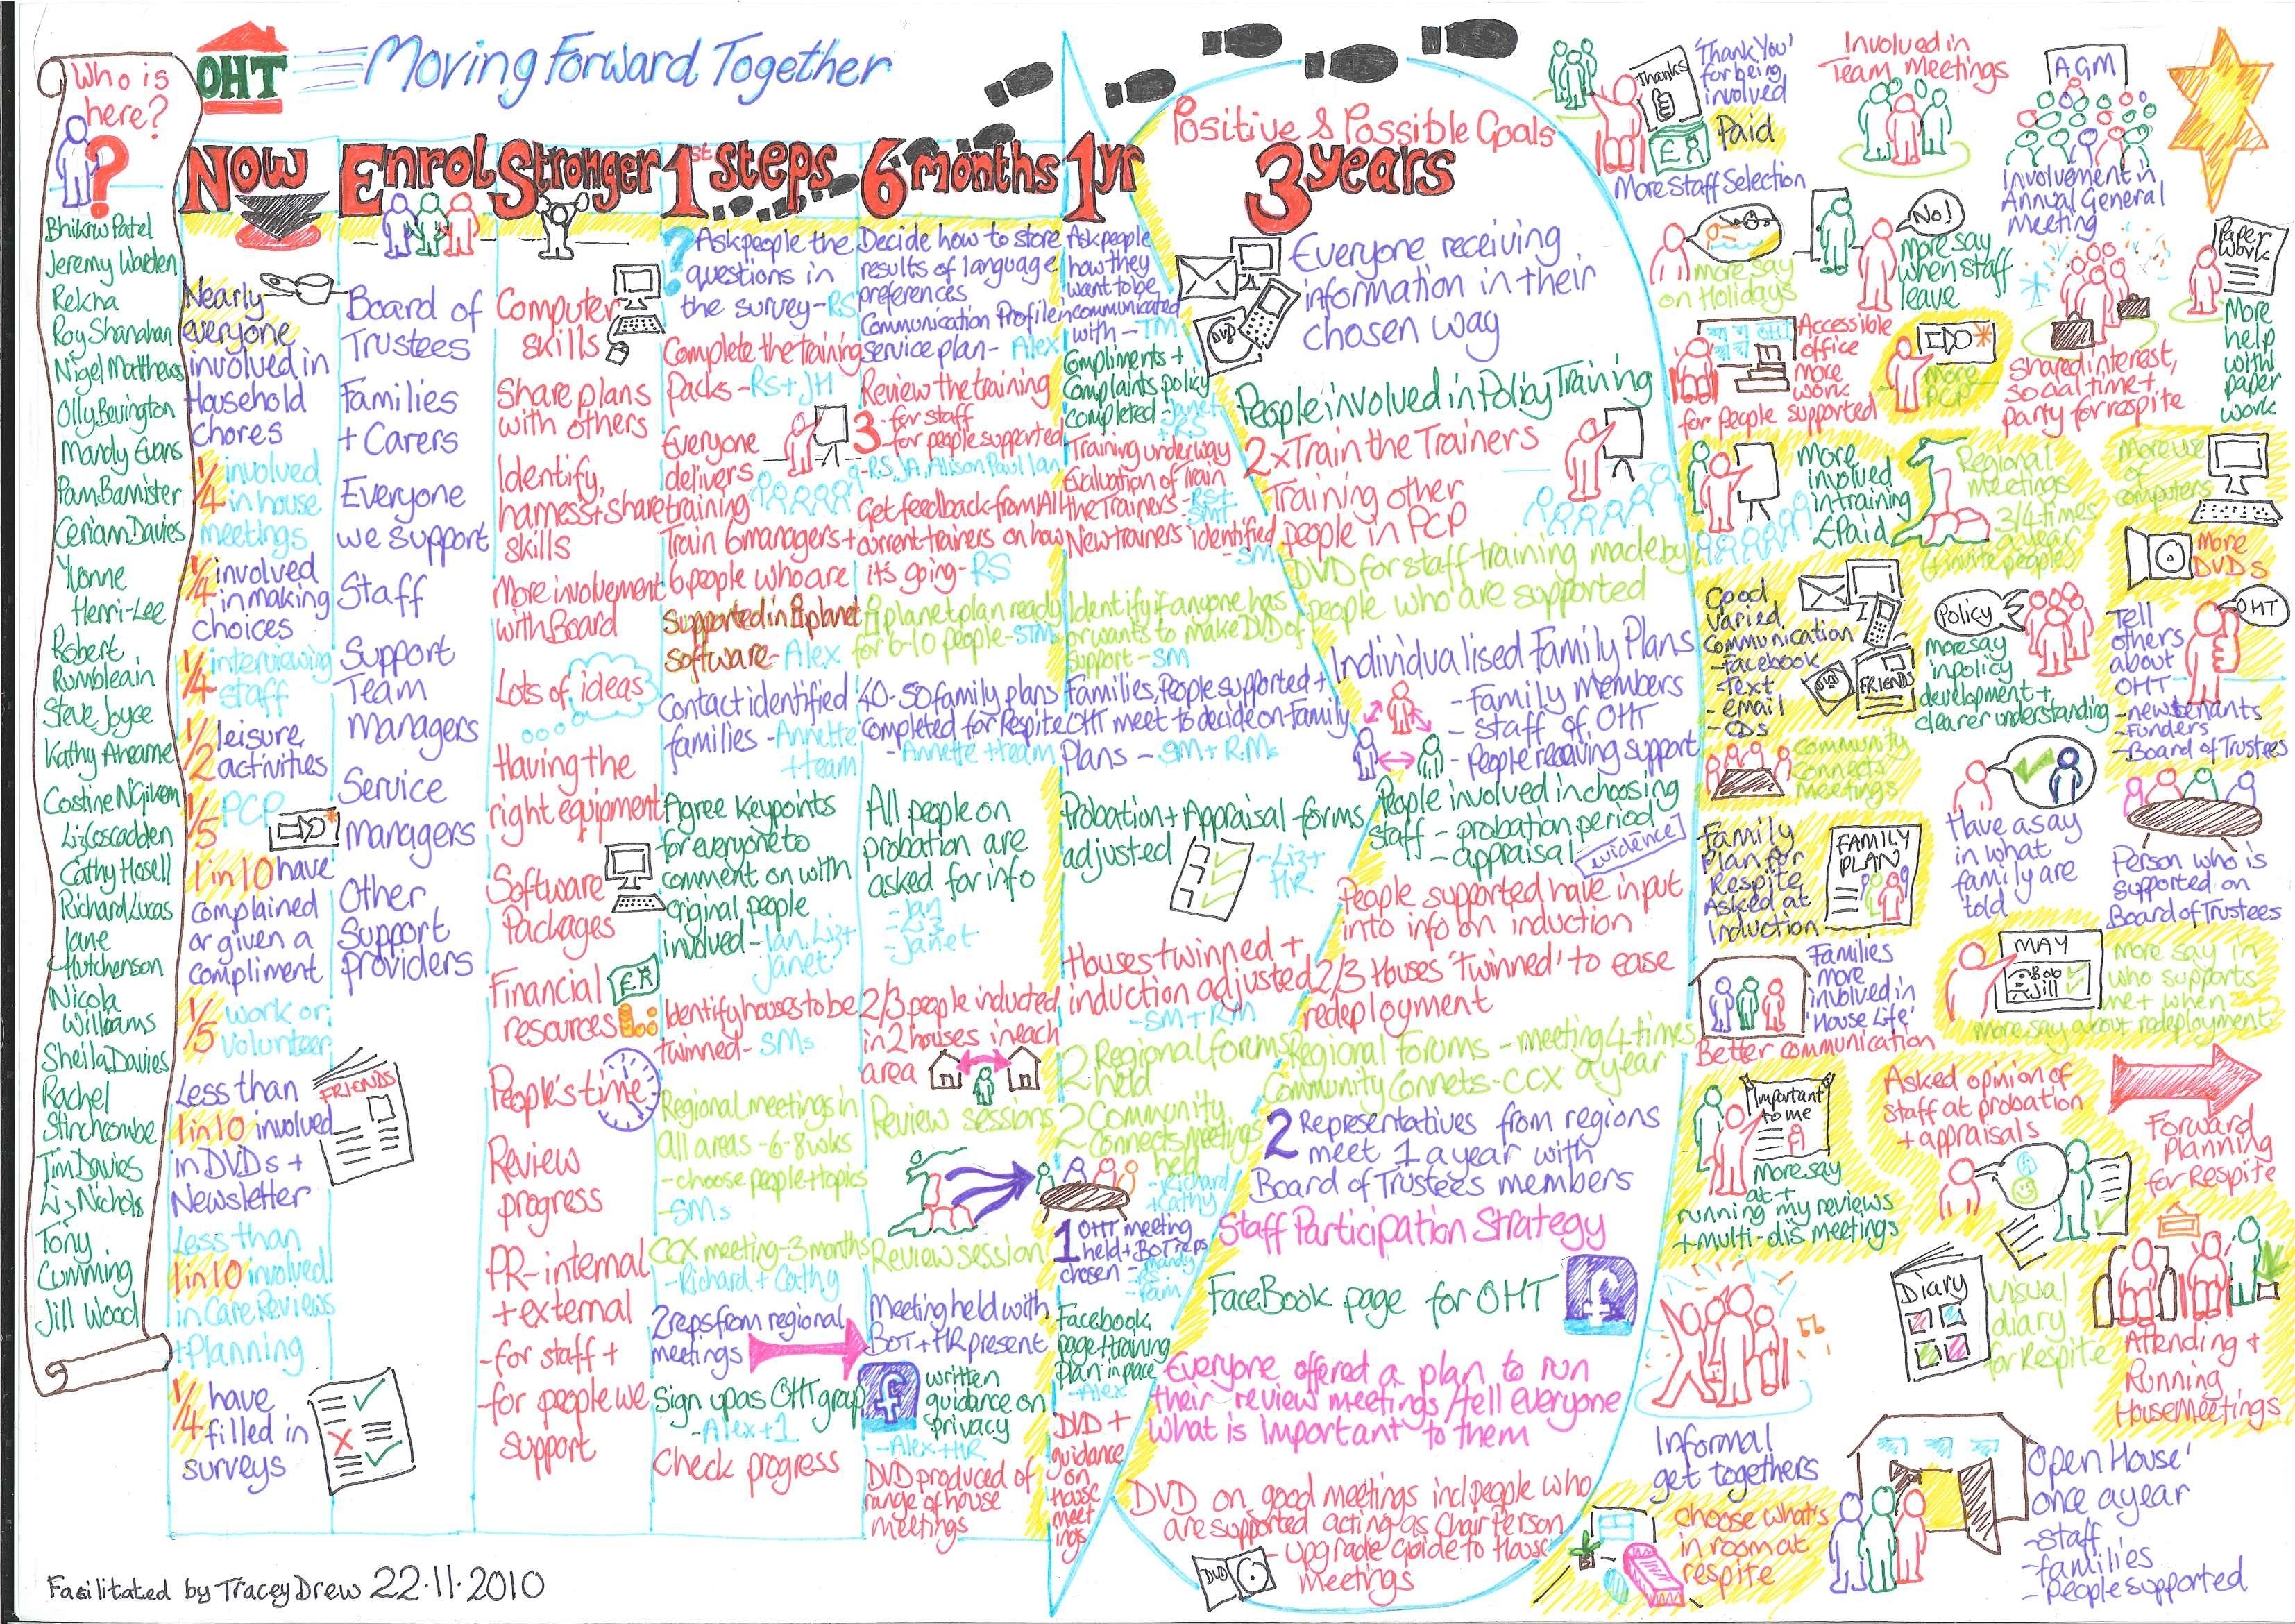 Who is
here?
Bhikow Patel
Jeremy Warden
Rekha
Roy Shanahan
Nigel Matthews
Olly Bevington
Mandy Evans
Pam Bannister
Ceriann Davies
Yvonne
Henri-Lee
Robert
Rumbleain
Steve Joyce
Kathy Ahearne
Liz Coscadden
Cathy Hosell
Richard Lucas
Jane
Hutchenson
Nicola
Williams
Sheila Davies
Rachel
Stinchcombe
Tim Davies
Liz Nichols
Tony
Cumming
Jill Wood
OHT
Moving Forward Together
Now
Nearly
everyone
involved in
Household
chores
1/4 involved
in house
meetings
1/4 involved
in making
choices
1/4 interviewing
staff
1/2 leisure
activities
1/5 PCP
1 in 10 have
complained
or given a
compliment
1/5 work or
volunteer
Less than
1 in 10 involved
in DVDs +
Newsletter
FRIENDS
Less than
1 in 10 involved
in Care Reviews
+ Planning
1/4 have
filled in
surveys
Enrol
Board of
Trustees
Families
+ Carers
Everyone
we support
Staff
Support
Team
Managers
Service
Managers
Other
Support
providers
Stronger
Computer
skills
Share plans
with others
Identify,
harness + share
skills
More involvement
with Board
Lots of ideas
Having the
right equipment
Software
Packages
Financial
resources
People's time
Review
progress
PR - internal
+ external
- for staff +
- for people we
support
1st steps
? Ask people the
questions in
the survey - RS
Complete the training
Packs - RS + JH
Everyone
delivers
training
Train 6 managers +
6 people who are
Supported in planet
software - Alex
Contact identified
families - Annette
+ team
Agree Keypoints
for everyone to
comment on with
original people
involved - Ian, Liz +
Janet
Identify houses to be
twinned - SMs
Regional meetings in
All areas - 6-8 wks
- choose people + topics
- SMs
CCX meeting - 3 months
- Richard + Cathy
2 reps from regional
meetings
Sign up as OHT group
- Alex + 1
Check progress
6 months
Decide how to store
results of language
preferences
Communication Profile in
service plan - Alex
Review the training
3 - for staff
- for people supported
- RS, JA, Alison Paul Ian
Get feedback from All
current trainers on how
it's going - RS
planet plan ready
for 6-10 people - STMs
40-50 family plans
completed for Respite
- Annette + team
All people on
probation are
asked for info
- Jan
- Liz
- Janet
2/3 people inducted
in 2 houses in each
area
Review sessions
Review session
Meeting held with
BOT + HR present
written
guidance on
privacy
- Alex + HR
DVD produced of
range of house
meetings
1 yr
Ask people
how they
want to be
communicated
with - TM
Compliments +
Complaints policy
completed - Janet
+ RS
Training underway
Evaluation of Train
the Trainers - RS +
SMT
New trainers identified
- SM
Identify if anyone has
or wants to make DVD of
support - SM
Families, People supported +
OHT meet to decide on Family
Plans - SM + R.Ms
Probation + Appraisal forms
adjusted
- Liz +
HR
Houses twinned +
induction adjusted
- SM + RM
2 Regional forms
held
2 Community
Connects meetings
held
- Richard
+ Cathy
1 OHT meeting
held + BOT reps
chosen - Mandy
RS
Pam
Facebook
page + training
plan in place
- Alex
DVD +
guidance
on
House
meet
ings
Positive & Possible Goals
3 years
DVD
Everyone receiving
information in their
chosen way
People involved in Policy Training
2 x Train the Trainers
Training other
people in PCP
DVD for staff training made by
people who are supported
Individualised Family Plans
- Family members
- Staff of OHT
- People receiving support
People involved in choosing
staff - probation period
- appraisal
evidence
People supported have input
into info on induction
2/3 Houses 'twinned' to ease
redeployment
Regional Forums - meeting 4 times
a year
Community Connets - CCX
2 Representatives from regions
meet 1 a year with
Board of Trustees members
Staff Participation Strategy
FaceBook page for OHT
f
Everyone offered a plan to run
their review meetings / tell everyone
what is important to them
DVD on good meetings incl people who
are supported acting as Chair Person
- upgrade Guide to House
meetings
DVD
Thanks
'Thank You'
for being
involved
Paid
More Staff Selection
Involved in
Team Meetings
AGM
Involvement in
Annual General
Meeting
more say
on Holidays
No!
more say
when staff
leave
Paper
Work
More
help
with
paper
work
OHT
Accessible
office
more
work
for people supported
more
PCP
Shared interest,
social time +
party for respite
More
involved
in training
£Paid
Regional
meetings
3/4 times
a year
(+ invite people)
More use
of
computers
More
DVDs
Good
Varied
Communication
- Facebook
- Text
- email
- CDs
DVD
FRIENDS
Policy
more say
in policy
development +
clearer understanding
OHT
Tell
others
about
OHT
- new tenants
- Funders
- Board of Trustees
Community
Connects
Meetings
Family
Plan for
Respite
Asked at
Induction
FAMILY
PLAN
Have a say
in what
family are
told
Person who is
supported on
Board of Trustees
Families
more
involved in
'House Life'
Better communication
MAY
Bob
Jill
more say in
who supports
me + when
more say about redeployment
Important
to me
more say
at +
running my reviews
+ multi-dis meetings
Asked opinion of
staff at probation
+ appraisals
Forward
Planning
for Respite
Diary
Visual
diary
for Respite
Attending +
Running
House Meetings
Informal
get togethers
choose what's
in room at
respite
'Open House'
once a year
- staff
- families
- people supported
Facilitated by Tracey Drew 22.11.2010